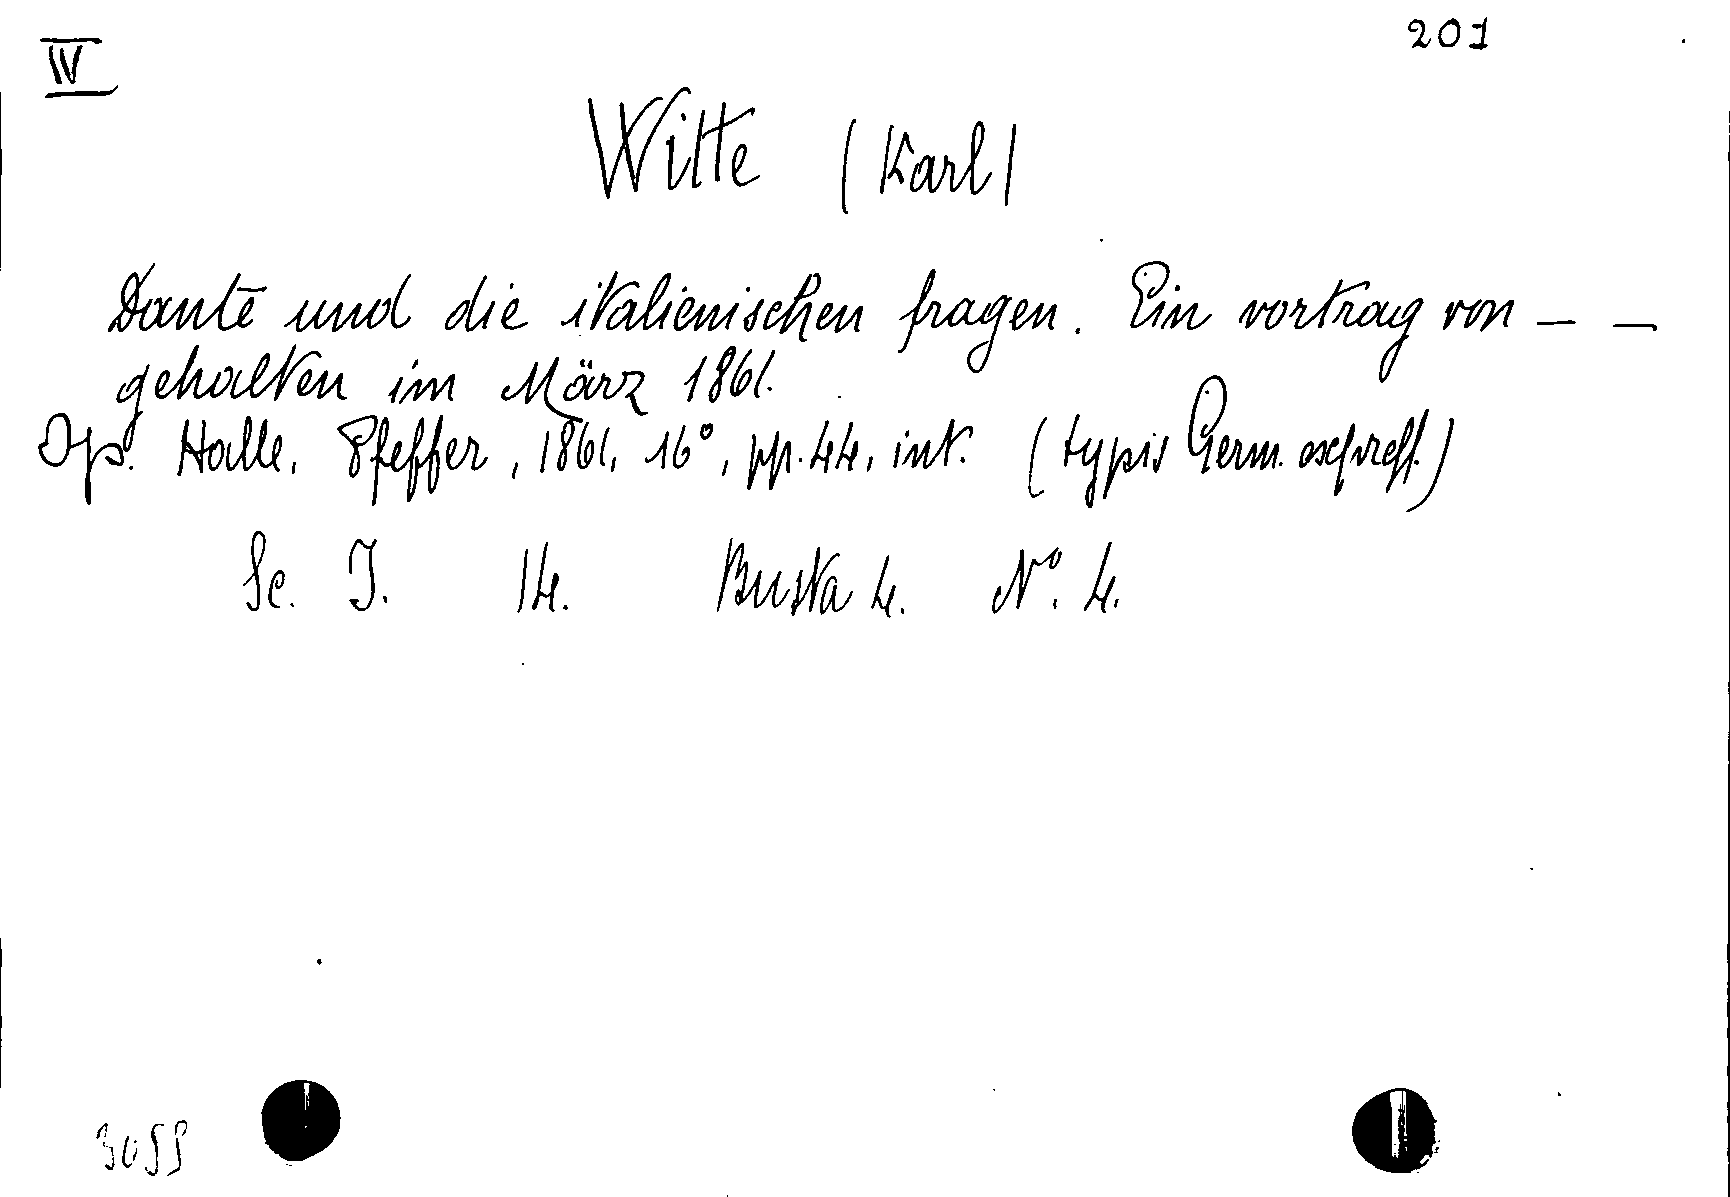 IV
201
Witte (Karl)
Dante und die italienischen fragen. Ein vortrag von _ _
gehalten im März 1861.
Op. Halle, Pfeffer, 1861, 16°, pp. 44, int. (typis Germ. expreff.)
Sc. I. 14. Busta 4. N°. 4.